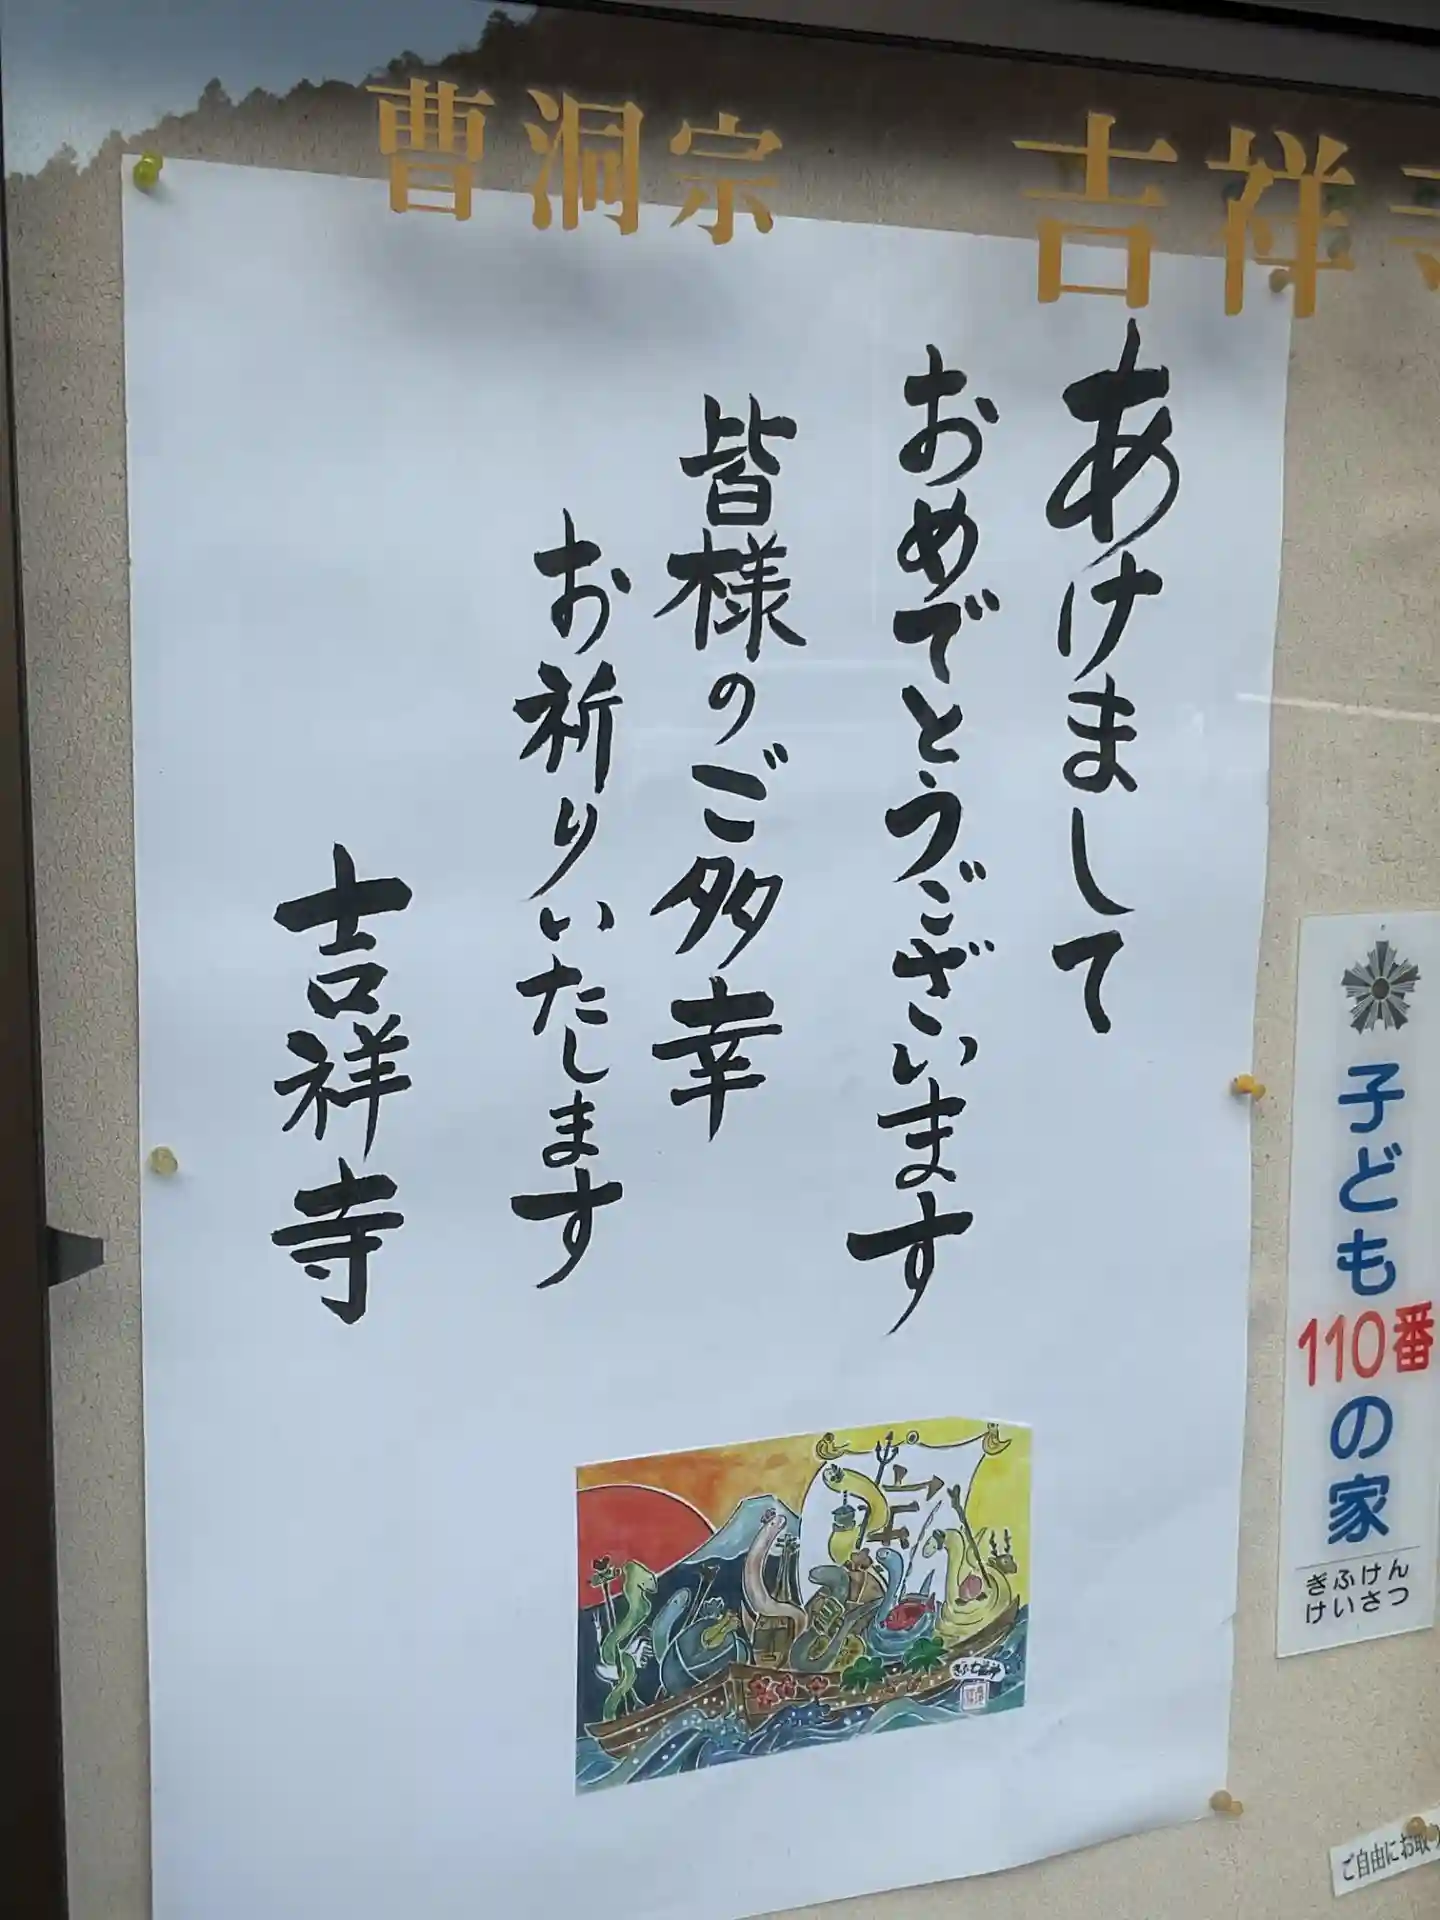 曹洞宗 吉祥寺
あけまして
おめでとうございます
皆様のご多幸
お祈りいたします
吉祥寺
宝
子ども
110番
の家
ぎふけん
けいさつ
ご自由にお取り